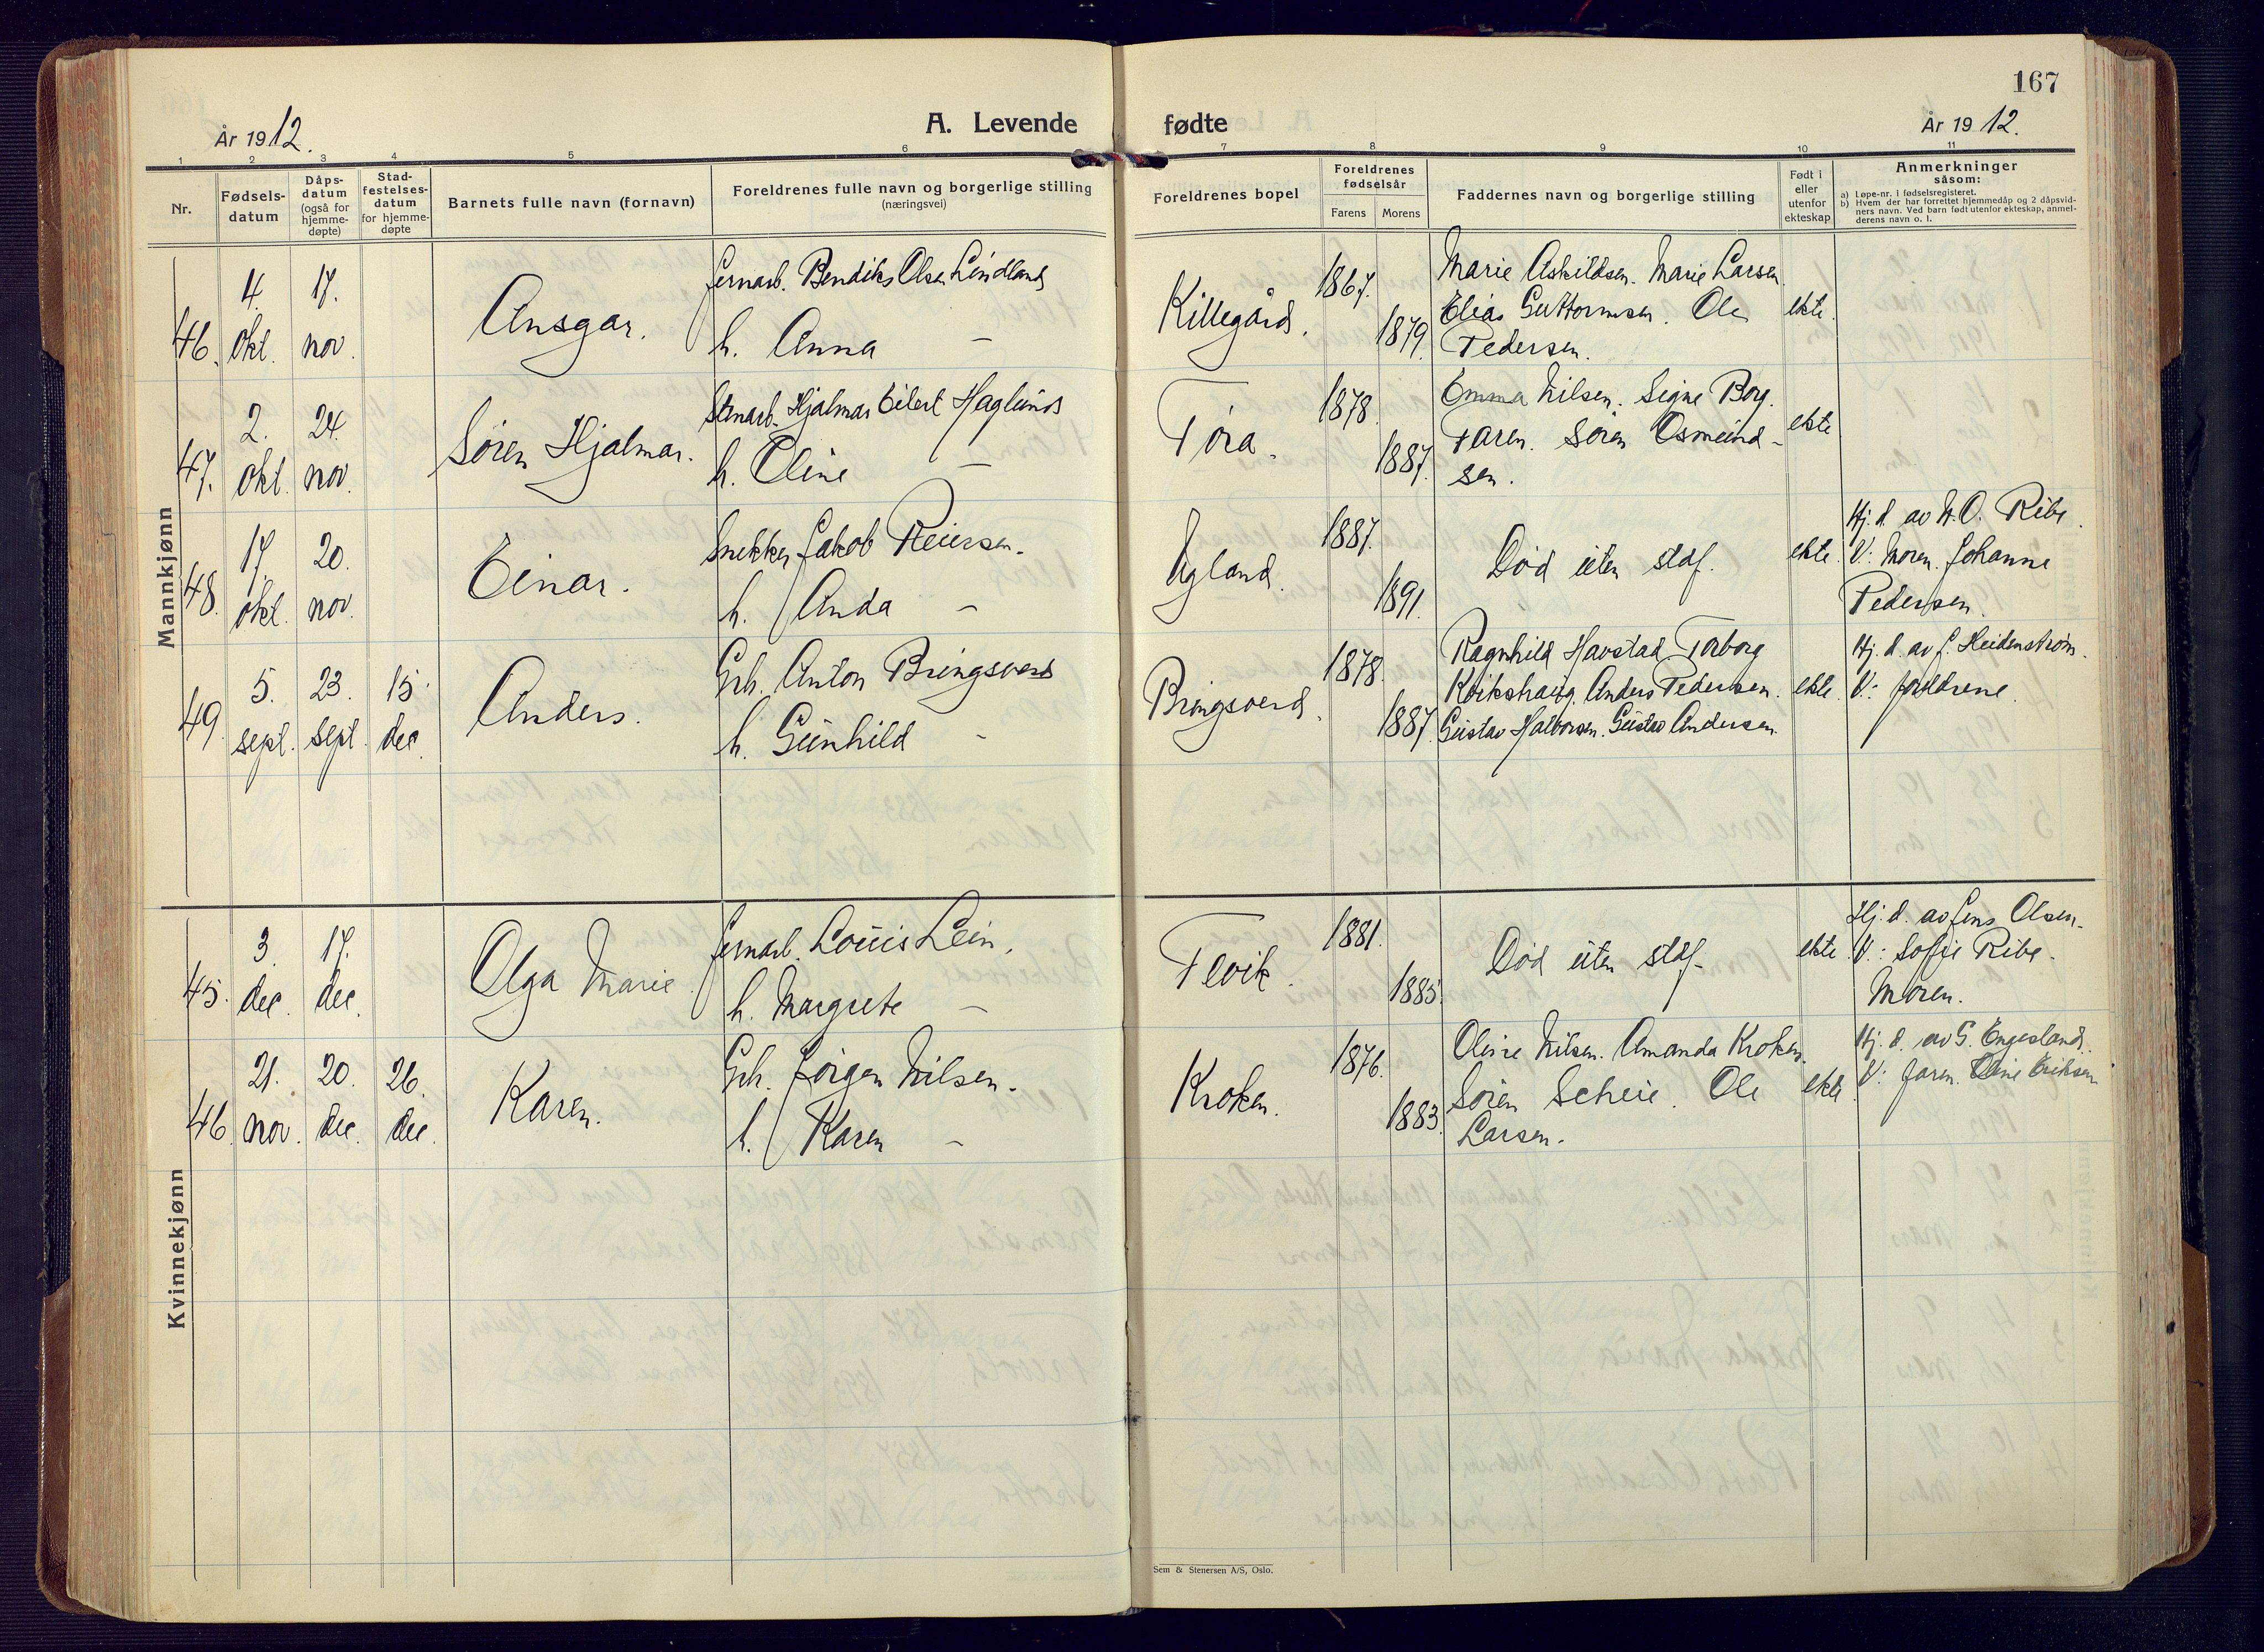 167
År 1912.
A. Levende
fødte
År 1912.
1 2 3 4 5 6 7 8 9 10 11
Nr.
Fødsels-
datum
Dåps-
datum
(også for
hjemme-
døpte)
Stad-
festelses-
datum
for hjemme-
døpte
Barnets fulle navn (fornavn)
Foreldrenes fulle navn og borgerlige stilling
(næringsvei)
Foreldrenes bopel
Foreldrenes
fødselsår
Farens
Morens
Faddernes navn og borgerlige stilling
Født i
eller
utenfor
ekteskap
Anmerkninger
såsom:
a) Løpe-nr. i fødselsregisteret.
b) Hvem der har forrettet hjemmedåp og 2 dåpsvid-
ners navn. Ved barn født utenfor ekteskap, anmel-
derens navn o. l.
Mannkjønn
46.
4.
okt.
17.
nov.
Ansgar.
Jernarb. Bendiks Olsen Lindland
h. Anna –
Killegård.
1867.
1879.
Marie Askildsen. Marie Larsen.
Elias Guttormsen. Ole
Pedersen.
ekte.
47.
2.
okt.
24.
nov.
Søren Hjalmar.
Stenarb. Hjalmar Eilert Haglund
h. Oline –
Tøra.
1878.
1887.
Emma Nilsen. Signe Borg.
Faren. Søren Osmund-
sen.
ekte
48.
17.
okt.
20.
nov.
Einar.
Snekker Jakob Reiersen.
h. Anda –
Ugland.
1887.
1891.
Død uten stdf.
ekte.
Hj. d. av N. O. Ribe.
V: Moren. Johanne
Pedersen.
49.
5.
sept.
23.
sept.
15.
dec.
Anders.
Grb. Anton Bringsverd
h. Gunhild –
Bringsverd.
1878.
1887.
Ragnhild Havstad Torborg
Kvikshaug. Anders Pedersen.
Gustav Halvorsen. Gustav Andersen.
ekte.
Hj. d. av J. Heidenstrøm.
V: foreldrene.
Kvinnekjønn
45.
3.
dec.
17.
dec.
Olga Marie.
Jernarb. Louis Lein.
h. Margrete –
Fevik.
1881.
1885.
Død uten stdf.
ekte.
Hj. d. av Jens Olsen.
V: Sofie Ribe.
Moren.
46.
21.
nov.
20.
dec.
26.
dec.
Karen.
Grb. Jörgen Nilsen.
h. Karen –
Kroken.
1876.
1883.
Oline Nilsen. Amanda Kroken.
Søren Scheie. Ole
Larsen.
ekte.
Hj. d. av G. Engesland.
V: faren. Oline Eriksen
Sem & Stenersen A/S, Oslo.